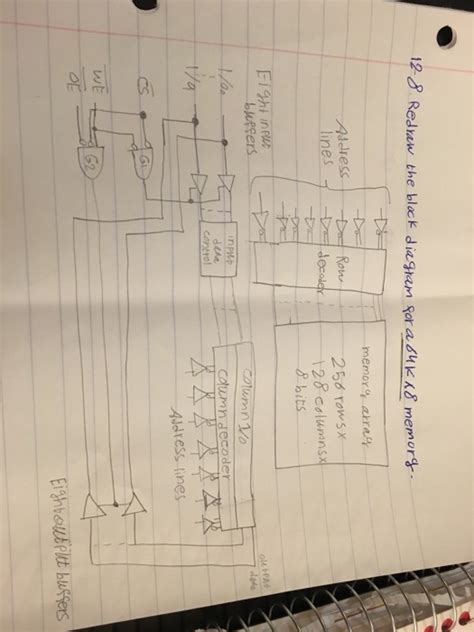 12-8 Redraw the block diagram for a 64K x 8 memory.
Address
lines
Row
decoder
memory array
256 rows x
128 columns x
8 bits
Eight input
buffers
I/O0
I/O7
input
data
control
column I/O
column decoder
Address lines
output
data
CS
WE
OE
G1
G2
Eight output buffers